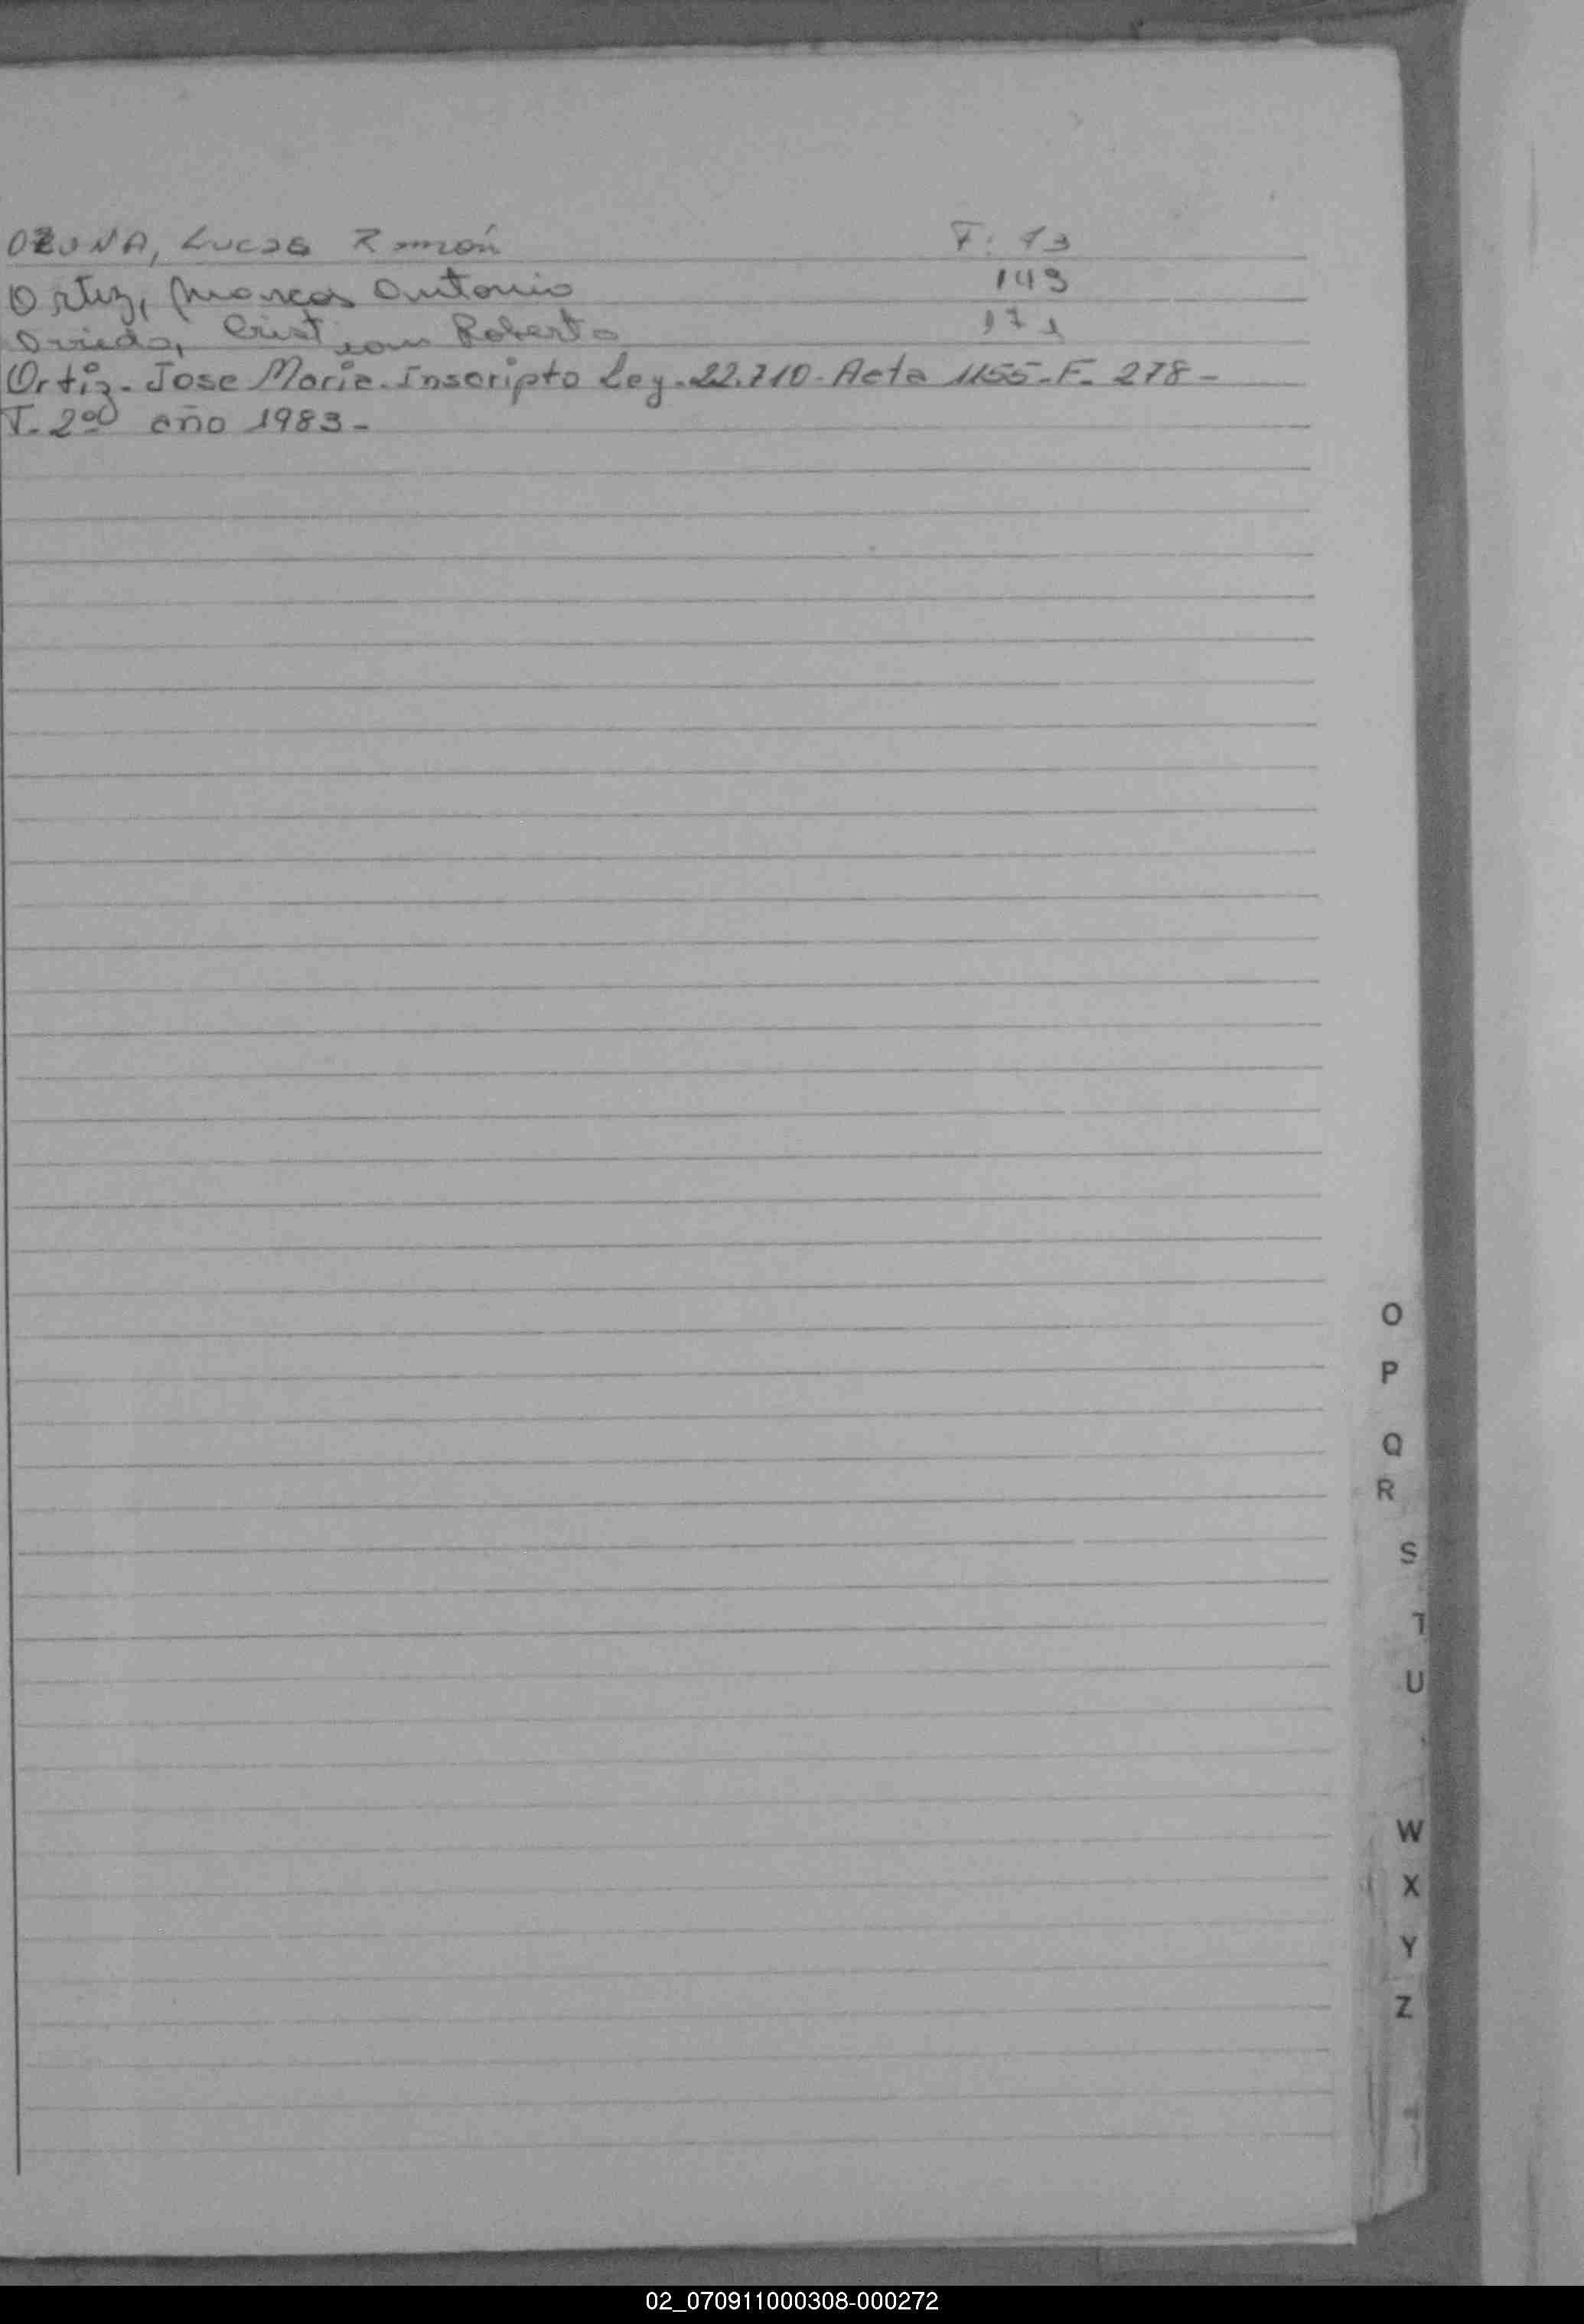 OZUNA, Lucas Ramón F: 13
Ortiz, Marcos Antonio 149
Oviedo, Cristian Roberto 171
Ortiz- Jose Maria- Inscripto Ley- 22.710- Acta 1155- F- 278-
T- 2º año 1983-
O
P
Q
R
S
T
U
W
X
Y
Z
02_070911000308-000272